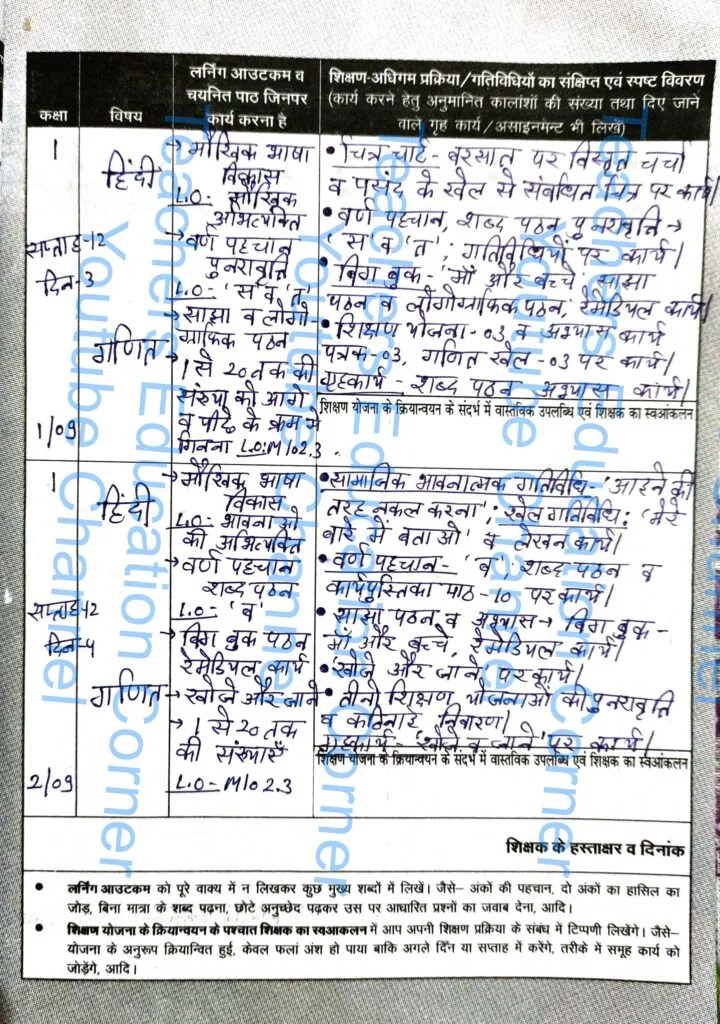 कक्षा
विषय
लर्निंग आउटकम व
चयनित पाठ जिनपर
कार्य करना है
शिक्षण-अधिगम प्रक्रिया/गतिविधियों का संक्षिप्त एवं स्पष्ट विवरण
(कार्य करने हेतु अनुमानित कालांशों की संख्या तथा दिए जाने
वाले गृह कार्य/असाइनमेन्ट भी लिखें)
1
सप्ताह-12
दिन-3
1/09
हिंदी
गणित
→ मौखिक भाषा
विकास
L.O- मौखिक
अभिव्यक्ति
→ वर्ण पहचान
पुनरावृत्ति
L.O- 'स' व 'त'
→ साझा व लोगो-
ग्राफिक पठन
→ 1 से 20 तक की
संख्या को आगे
व पीछे के क्रम से
गिनना L.O:M102.3
• चित्र चार्ट- बरसात पर विस्तृत चर्चा
व पसंद के खेल से संबंधित चित्र पर कार्य।
• वर्ण पहचान, शब्द पठन पुनरावृत्ति →
'स' व 'त'; गतिविधियों पर कार्य।
• बिग बुक- 'माँ और बच्चे' साझा
पठन व लोगोग्राफिक पठन, रेमेडियल कार्य।
• शिक्षण योजना-03 व अभ्यास कार्य
पत्रक-03, गणित खेल-03 पर कार्य।
गृहकार्य- शब्द पठन अभ्यास कार्य।
शिक्षण योजना के क्रियान्वयन के संदर्भ में वास्तविक उपलब्धि एवं शिक्षक का स्वआंकलन
1
सप्ताह-12
दिन-4
2/09
हिंदी
गणित
→ मौखिक भाषा
विकास
L.O- भावनाओ
की अभिव्यक्ति
→ वर्ण पहचान
शब्द पठन
L.O- 'ब'
→ बिग बुक पठन
रेमेडियल कार्य
→ खोजे और जाने
→ 1 से 20 तक
की संख्याएँ
L.O- M102.3
• सामाजिक भावनात्मक गतिविधि- 'आइने की
तरह नकल करना'; खेल गतिविधि: 'मेरे
बारे में बताओ' व लेखन कार्य।
• वर्ण पहचान- 'ब'; शब्द पठन व
कार्यपुस्तिका पाठ-10 पर कार्य।
• साझा पठन व अभ्यास → बिग बुक-
माँ और बच्चे, रेमेडियल कार्य।
• 'खोजे और जाने' पर कार्य।
• तीनो शिक्षण योजनाओं की पुनरावृत्ति
व कठिनाई निवारण।
गृहकार्य- 'खोजे व जाने' पर कार्य।
शिक्षण योजना के क्रियान्वयन के संदर्भ में वास्तविक उपलब्धि एवं शिक्षक का स्वआंकलन
शिक्षक के हस्ताक्षर व दिनांक
• लर्निंग आउटकम को पूरे वाक्य में न लिखकर कुछ मुख्य शब्दों में लिखें। जैसे– अंकों की पहचान, दो अंकों का हासिल का
जोड़, बिना मात्रा के शब्द पढ़ना, छोटे अनुच्छेद पढ़कर उस पर आधारित प्रश्नों का जवाब देना, आदि।
• शिक्षण योजना के क्रियान्वयन के पश्चात शिक्षक का स्वआकलन में आप अपनी शिक्षण प्रक्रिया के संबंध में टिप्पणी लिखेंगे। जैसे–
योजना के अनुरूप क्रियान्वित हुई, केवल फलां अंश हो पाया बाकि अगले दिन या सप्ताह में करेंगे, तरीके में समूह कार्य को
जोड़ेंगे, आदि।
Teachers Education Corner
Youtube Channel
Teachers Education Corner
Youtube Channel
Teachers Education Corner
Youtube Channel